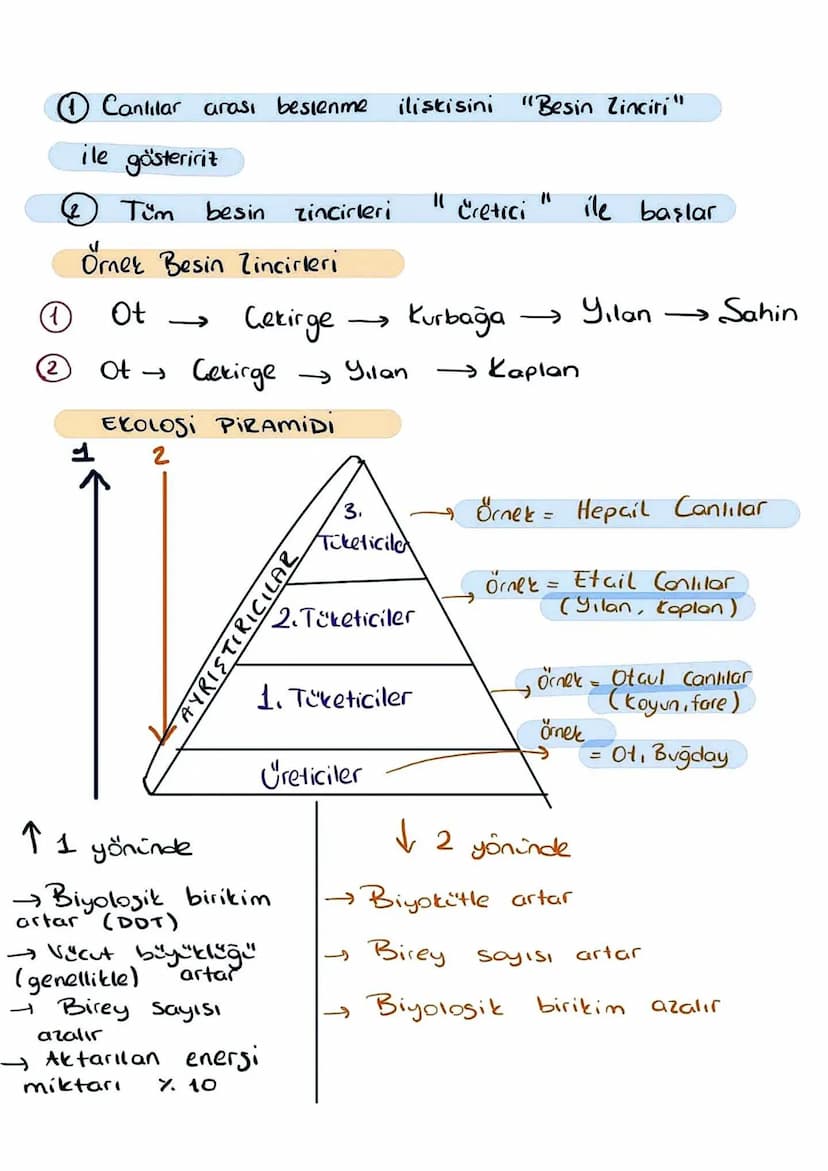 ① Canlılar arası beslenme ilişkisini "Besin Zinciri"
ile gösteririz
② Tüm besin zincirleri "üretici" ile başlar
Örnek Besin Zincirleri
① Ot → Çekirge → Kurbağa → Yılan → Şahin
② Ot → Çekirge → Yılan → Kaplan
EKOLOJİ PİRAMİDİ
1 2
AYRIŞTIRICILAR
3.
Tüketiciler
→ Örnek = Hepçil Canlılar
2. Tüketiciler
→ Örnek = Etçil Canlılar
(Yılan, Kaplan)
1. Tüketiciler
→ Örnek = Otçul Canlılar
(Koyun, fare)
Üreticiler
Örnek
= Ot, Buğday
↑ 1 yönünde
→ Biyolojik birikim
artar (DDT)
→ Vücut büyüklüğü
(genellikle) artar
→ Birey sayısı
azalır
→ Aktarılan enerji
miktarı % 10
↓ 2 yönünde
→ Biyokütle artar
→ Birey sayısı artar
→ Biyolojik birikim azalır